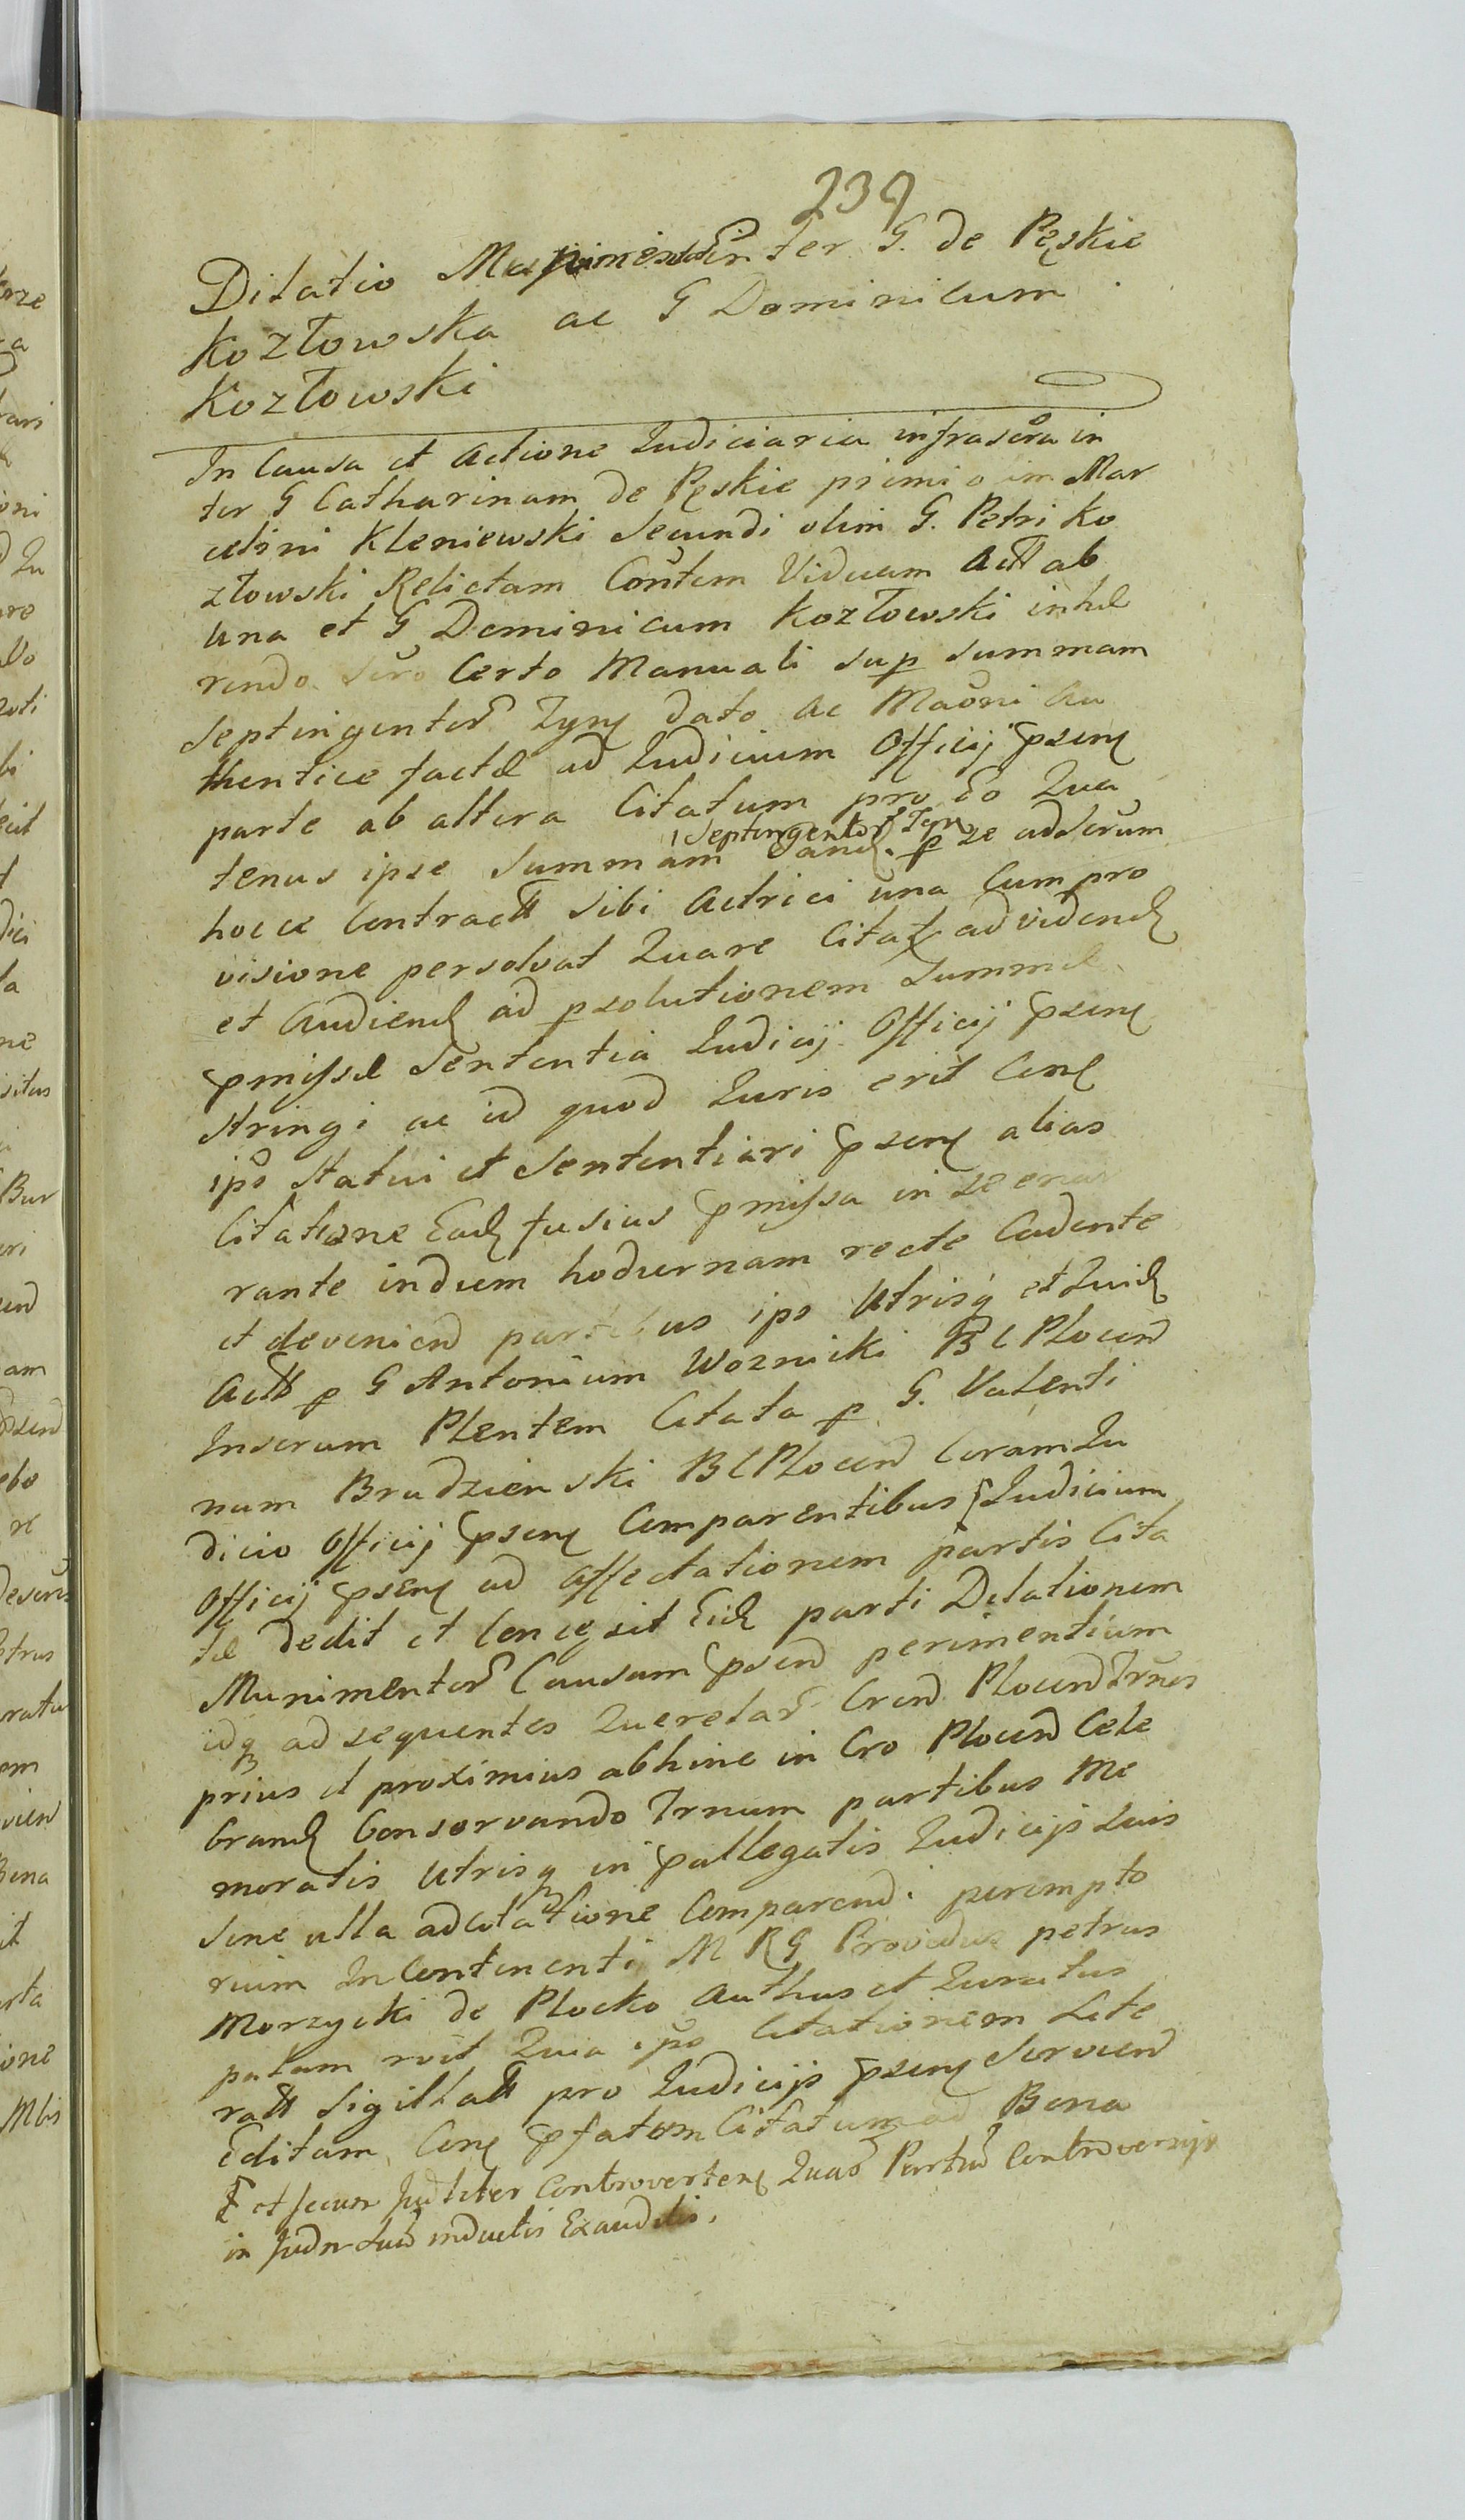 239
Dilatio Munimentor inter G. de Pęskie
Kozłowska ac G Dominicum
Kozłowski
In Causa et Actione Judiciaria infrascra in
ter G Catharinam de Pęskie primi o im Mar
celini Kleniewski Secundi olim G. Petri Ko
złowski Relictam Contem Viduam Actt ab
Una et G Dominicum Kozłowski inhæ
rendo Scro Certo Manuali sup summam
Septingentor Tynf dato ac Maoni au
thentice factæ ad Judicium Officij psens
parte ab altera Citatum pro eo Qua
tenus ipse Summam Septingentor Tynf dand. p se ad Scrum
hocce Contractt Sibi Actrici una Cum pro
visione persolvat Quare Citat ad vidend
et Audiend ad psolutionem Summæ
pmissæ Sententia Judicij Officij psens
stringi ac id quod Juris erit Cens
ipo Statui et Sententiari psens alias
Citatione Ead fusius pmissa in se enar
rante indiem hodiernam recte Cadente
et deveniend partibus ipo Utrisq et Quid
Actt p G Antonium Woznicki B C Plocen
Inscrum Plentem Citata p G. Valenti
num Brudzienski B C Plocen Coram Ju
dicio Officij psens Comparentibus Judicium
Officij psens ad affectationem partis Cita
tæ dedit et Concessit Eid parti Dilationem
Munimentor Causam psen perimentium
idq ad sequentes Querelar Cren Plocen Trnos
prius et proximius abhinc in Cro Plocen Cele
brand Conservando Trnum partibus Me
moratis Utrisq in pallegatis Judicijs suis
Sine ulla adcitatione Comparendi perempto
rium In Continenti M R G Providus petrus
Morzycki de Plocko Authus et Juratus
palam rcit Quia ipo Citationem Lite
ratt Sigillatt pro Judicijs psens Servien
Editam Cens pfatum Citatum ad Bona
et secum Judliter Controverten Quar Partiu Controversijs
in Judn Sua inductis Exauditis.